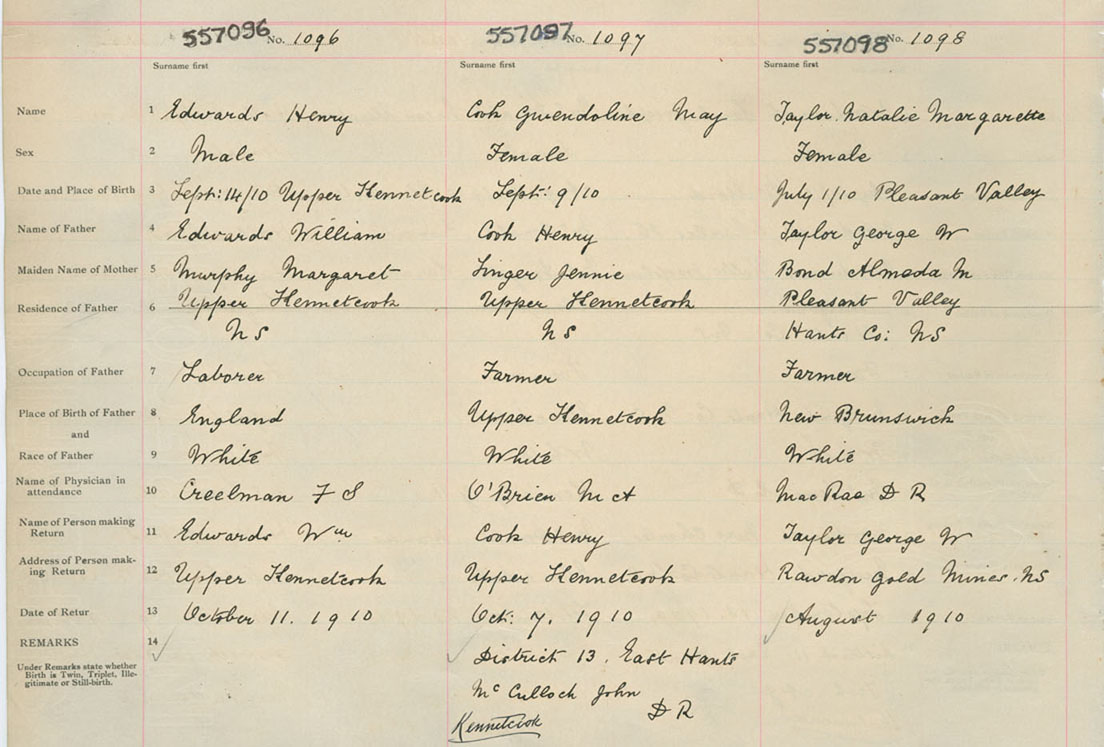 557096 No. 1096 557097 No. 1097 557098 No. 1098
Surname first Surname first Surname first
Name 1 Edwards Henry Cook Gwendoline May Taylor Natalie Margarette
Sex 2 Male Female Female
Date and Place of Birth 3 Sept: 14/10 Upper Kennetcook Sept: 9/10 July 1/10 Pleasant Valley
Name of Father 4 Edwards William Cook Henry Taylor George W
Maiden Name of Mother 5 Murphy Margaret Singer Jennie Bond Almeda M
Residence of Father 6 Upper Kennetcook Upper Kennetcook Pleasant Valley
NS NS Hants Co: NS
Occupation of Father 7 Laborer Farmer Farmer
Place of Birth of Father 8 England Upper Kennetcook New Brunswick
and
Race of Father 9 White White White
Name of Physician in
attendance 10 Creelman F S O'Brien M A MacRae D R
Name of Person making
Return 11 Edwards Wm Cook Henry Taylor George W
Address of Person mak-
ing Return 12 Upper Kennetcook Upper Kennetcook Rawdon Gold Mines. NS
Date of Retur 13 October 11. 1910 Oct: 7, 1910 August 1910
REMARKS 14
District 13. East Hants
Under Remarks state whether
Birth is Twin, Triplet, Ille-
gitimate or Still-birth.
McCulloch John
D R
Kennetcook